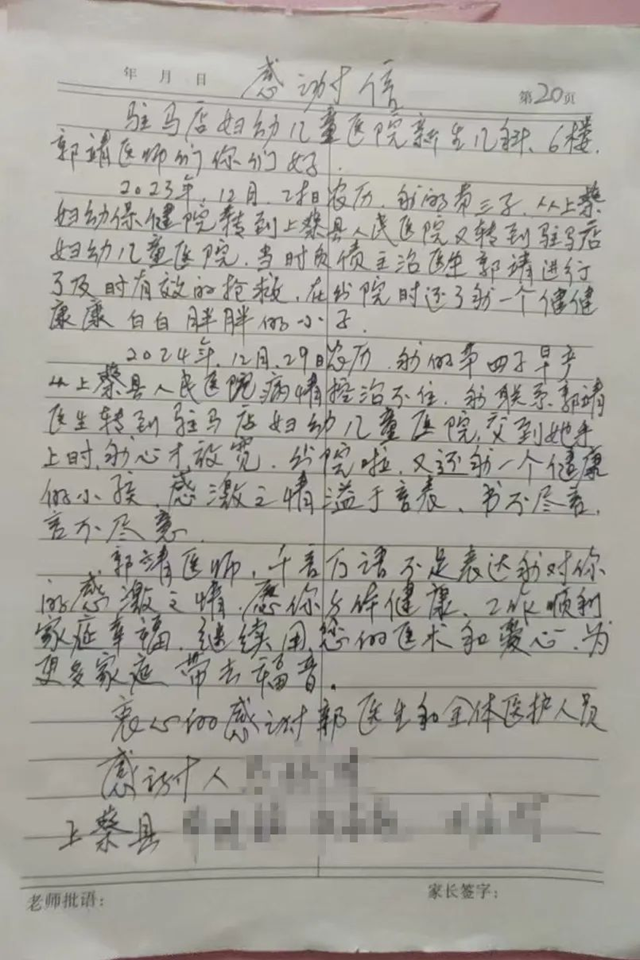 年 月 日 感谢信 第20页
驻马店妇幼儿童医院新生儿科、6楼.
郭靖医师们你们好.
2023年.12月.2日农历.我的第三子.从上蔡
妇幼保健院转到上蔡县人民医院又转到驻马店
妇幼儿童医院.当时负债主治医生郭靖进行
了及时有效的抢救.在出院时还了我一个健健
康康白白胖胖的小子.
2024年.12月.29日农历.我的第四子早产
从上蔡县人民医院病情控治不住.我联系郭靖
医生转到驻马店妇幼儿童医院,交到她手
上时,我心才放宽.出院啦.又还我一个健康
的小孩.感激之情溢于言表、书不尽言.
言不尽意.
郭靖医师.千言万语不足表达我对你
的感激之情.愿你身体健康.工作顺利
家庭幸福.继续用您的医术和爱心.为
更多家庭带去福音.
衷心的感谢郭医生和全体医护人员
感谢人
上蔡县
老师批语: 家长签字: